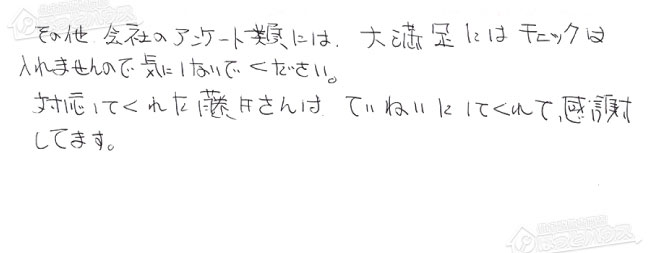 その他 会社のアンケート類には、大満足にはチェックは
入れませんので気にしないでください。
対応してくれた藤井さんは ていねいにしてくれて、感謝
してます。